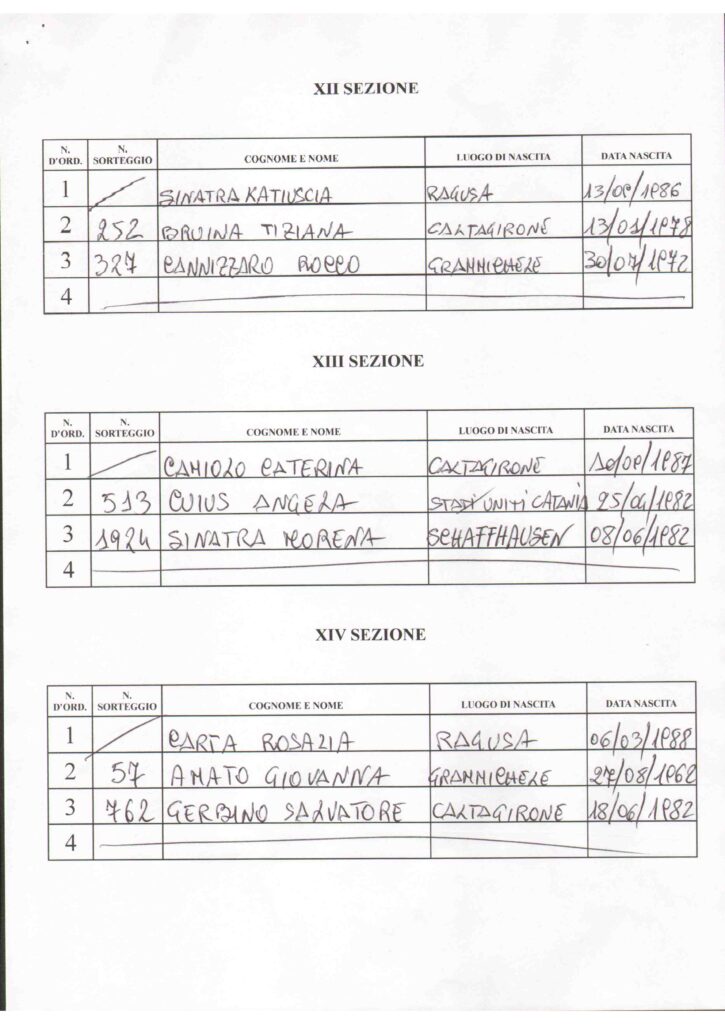 XII SEZIONE
N. D'ORD. N. SORTEGGIO COGNOME E NOME LUOGO DI NASCITA DATA NASCITA
1 SINATRA KATIUSCIA RAGUSA 13/09/1986
2 252 BRUINA TIZIANA CALTAGIRONE 13/01/1978
3 327 CANNIZZARO ROCCO GRAMMICHELE 30/07/1972
4
XIII SEZIONE
N. D'ORD. N. SORTEGGIO COGNOME E NOME LUOGO DI NASCITA DATA NASCITA
1 CAMIOLO CATERINA CALTAGIRONE 10/09/1987
2 513 CUIUS ANGELA STATI UNITI CATANIA 25/04/1982
3 1924 SINATRA MORENA SCHAFFHAUSEN 08/06/1982
4
XIV SEZIONE
N. D'ORD. N. SORTEGGIO COGNOME E NOME LUOGO DI NASCITA DATA NASCITA
1 CARTA ROSALIA RAGUSA 06/03/1988
2 57 AMATO GIOVANNA GRAMMICHELE 27/08/1962
3 762 GERBINO SALVATORE CALTAGIRONE 18/06/1982
4